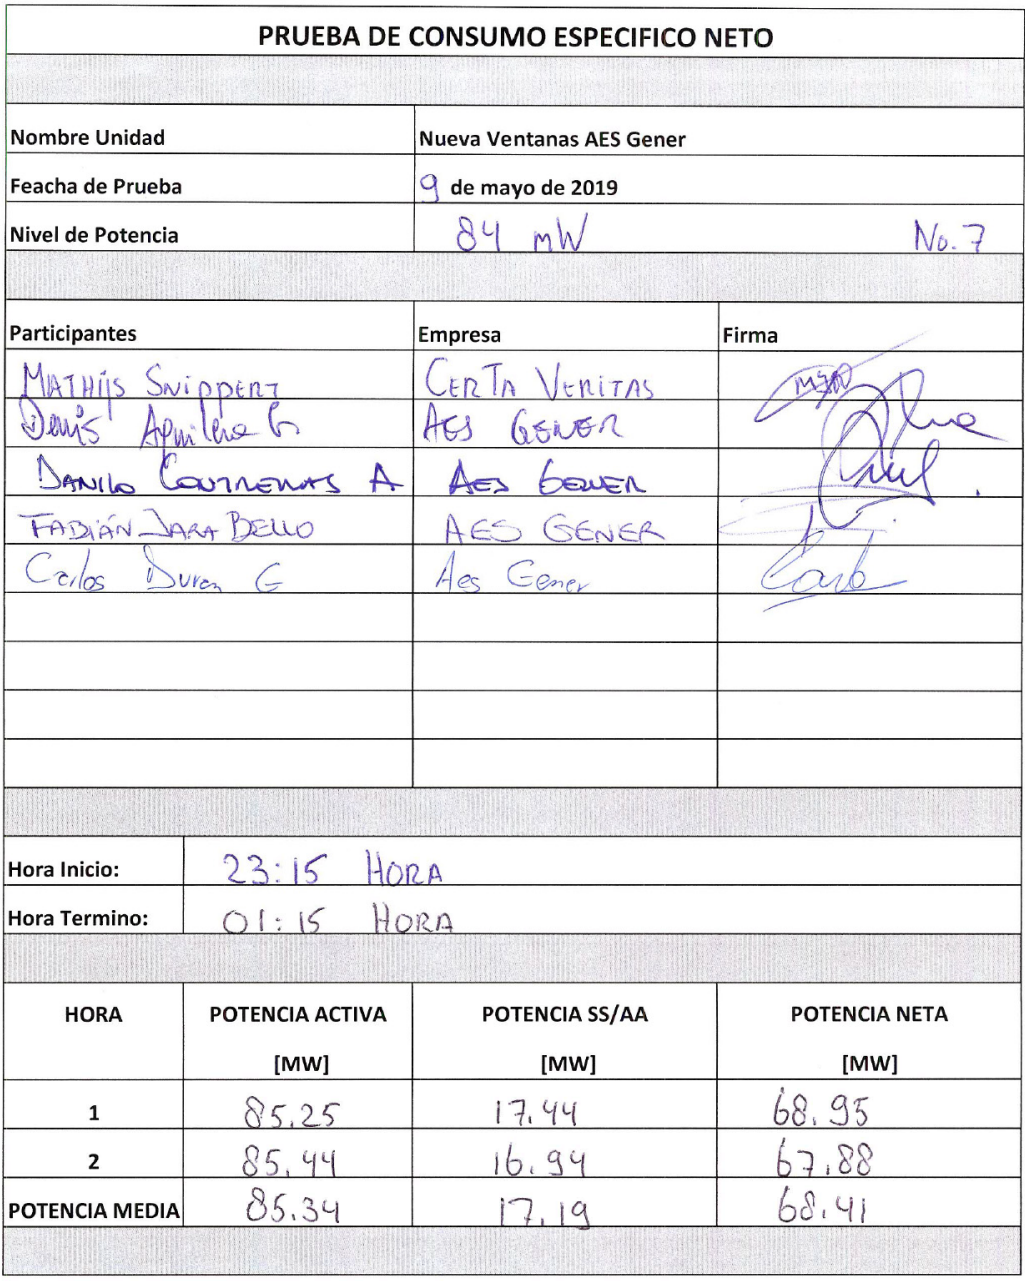 PRUEBA DE CONSUMO ESPECIFICO NETO
Nombre Unidad Nueva Ventanas AES Gener
Feacha de Prueba 9 de mayo de 2019
Nivel de Potencia 84 mW No. 7
Participantes Empresa Firma
MATHIJS SNIPPERT CERTA VERITAS
Denis G AES GENER
DANILO CONTRERAS A AES GENER
FABIÁN JARA BELLO AES GENER
Carlos Duran G Aes Gener
Hora Inicio: 23:15 HORA
Hora Termino: 01:15 HORA
HORA POTENCIA ACTIVA POTENCIA SS/AA POTENCIA NETA
[MW] [MW] [MW]
1 85.25 17.44 68.95
2 85.44 16.94 67.88
POTENCIA MEDIA 85.34 17.19 68.41